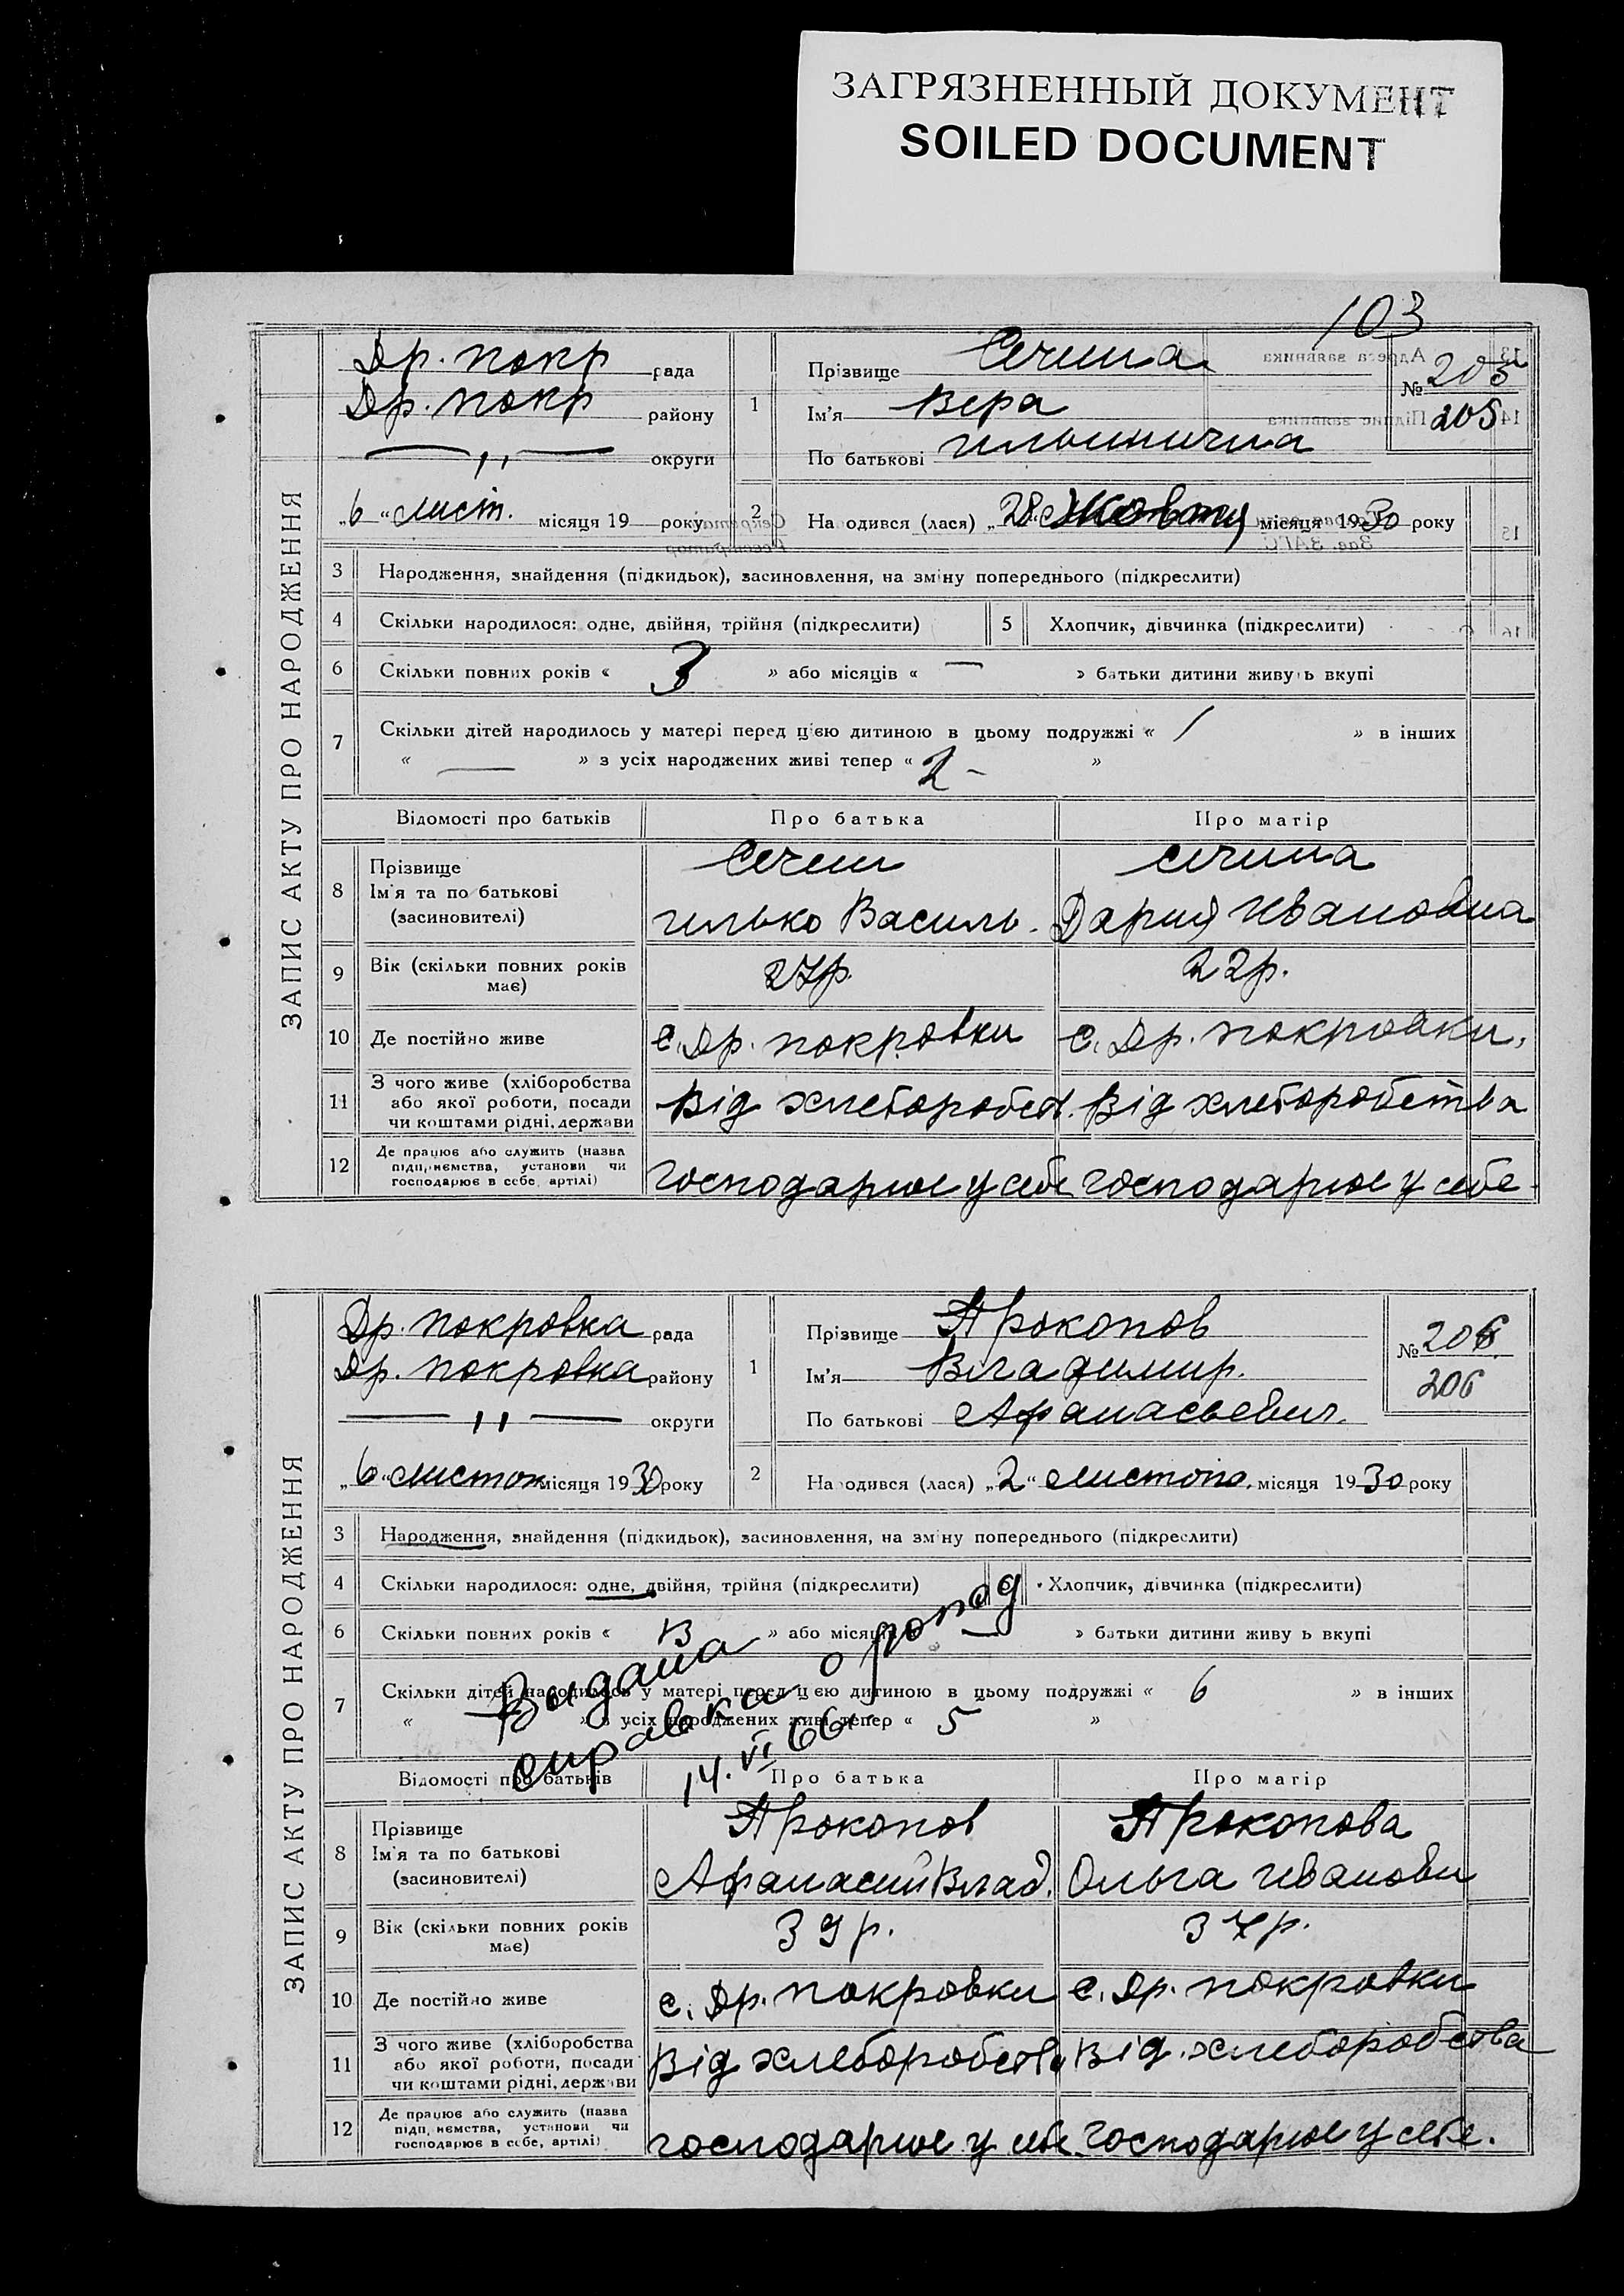 ЗАГРЯЗНЕННЫЙ ДОКУМЕНТ
SOILED DOCUMENT
103
ЗАПИС АКТУ ПРО НАРОДЖЕННЯ
Др. покр рада
Др. покр району
—„— округи
„6“ лист. місяця 19 року
1 Прізвище Сечина
Ім'я Вера
По батькові Ильинична
№ 205
205
2 Народився (лася) „28“ Жовтня місяця 1930 року
3 Народження, знайдення (підкидьок), засиновлення, на зміну попереднього (підкреслити)
4 Скільки народилося: одне, двійня, трійня (підкреслити) 5 Хлопчик, дівчинка (підкреслити)
6 Скільки повних років « 3 » або місяців « — » батьки дитини живуть вкупі
7 Скільки дітей народилось у матері перед цією дитиною в цьому подружжі « 1 » в інших
« — » з усіх народжених живі тепер « 2 - »
Відомості про батьків Про батька Про матір
8 Прізвище Ім'я та по батькові (засновителі)
Сечин Сечина
Илько Василь. Дария Ивановна
9 Вік (скільки повних років має) 27р. 22р.
10 Де постійно живе с. Др. покровки с. Др. покровки.
11 З чого живе (хліборобства або якої роботи, посади чи коштами рідні, держави
Від хлеборобст. Від хлеборобства
12 Де працює або служить (назва підприємства, установи чи господарює в себе, артілі)
господарює у себе господарює у себе.
ЗАПИС АКТУ ПРО НАРОДЖЕННЯ
Др. покровка рада
Др. покровка району
—„— округи
„6“ листоп місяця 1930 року
1 Прізвище Прокопов
Ім'я Владимир.
По батькові Афанасьевич.
№ 206
206
2 Народився (лася) „2“ листопо. місяця 1930 року
3 Народження, знайдення (підкидьок), засиновлення, на зміну попереднього (підкреслити)
4 Скільки народилося: одне, двійня, трійня (підкреслити) Хлопчик, дівчинка (підкреслити)
6 Скільки повних років « 13 » або місяців « — » батьки дитини живуть вкупі
7 Скільки дітей народилось у матері перед цією дитиною в цьому подружжі « 6 » в інших
« » з усіх народжених живі тепер « 5 »
Выдана
справка о рожд
14.VI 66
Відомості про батьків Про батька Про матір
8 Прізвище Ім'я та по батькові (засновителі)
Прокопов Прокопова
Афанасий Влад. Ольга Ивановн
9 Вік (скільки повних років має) 39р. 37р.
10 Де постійно живе с. Др. покровки с. Др. покровки
11 З чого живе (хліборобства або якої роботи, посади чи коштами рідні, держави
Від хлеборобства Від хлеборобства
12 Де працює або служить (назва підприємства, установи чи господарює в себе, артілі)
господарює у себе господарює у себе.